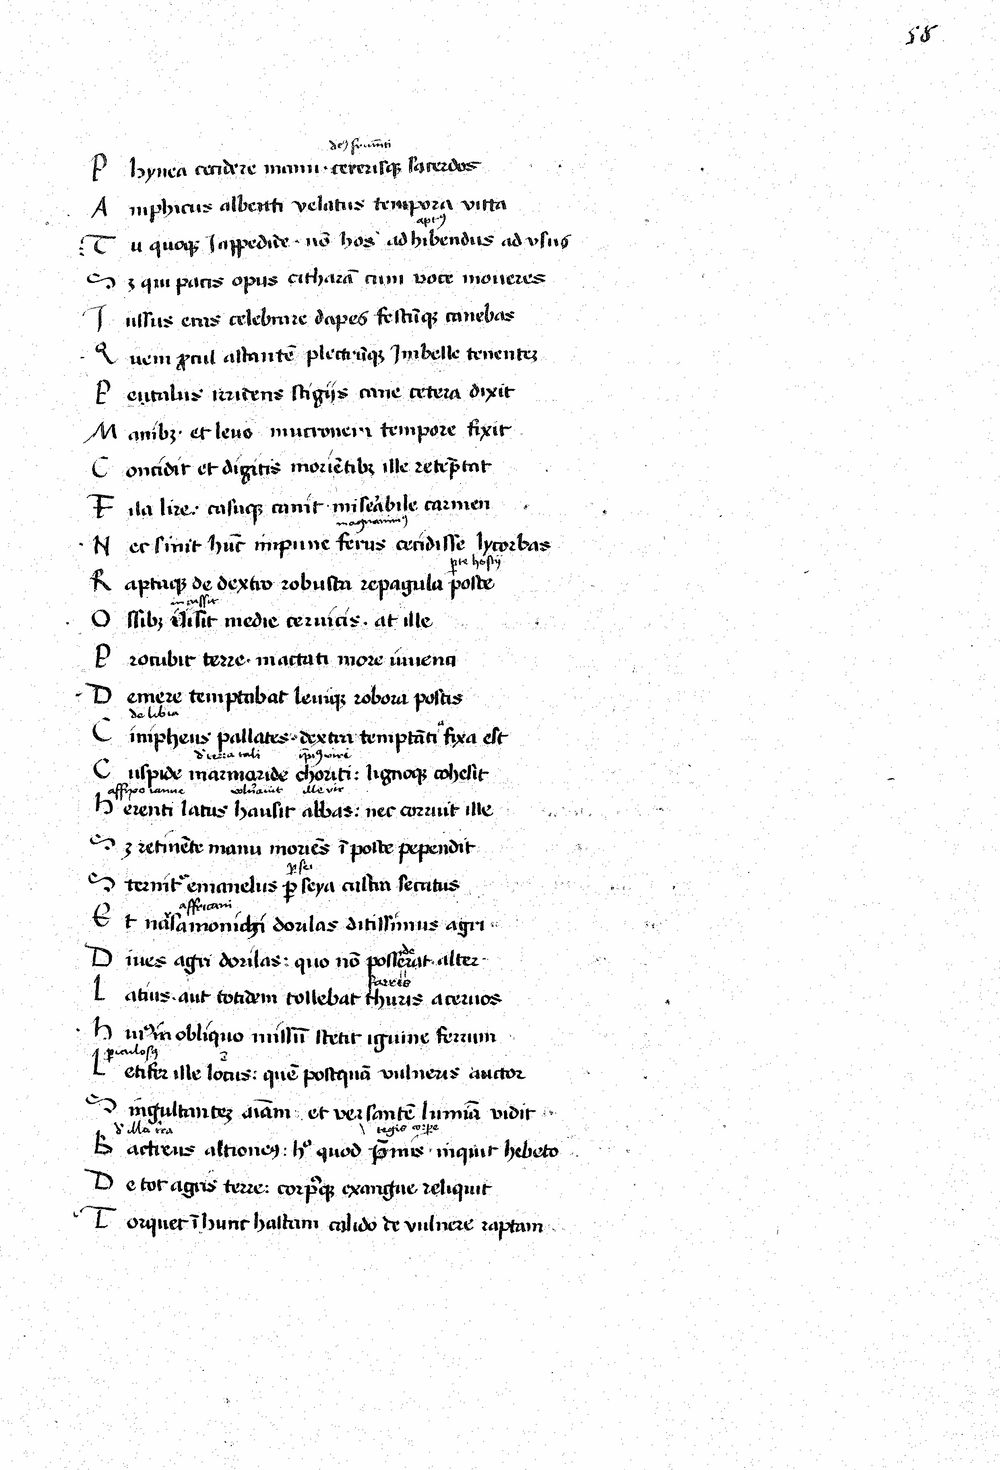 58
dee frumenti
P hynea cecidere manu · cererisqꝫ sacerdos
A mphicus albenti velatus tempora vitta
aptꝰ
T u quoqꝫ Jappedide · nō hos adhibendus ad vsus
S ꝫ qui pacis opus citharā cum voce moueres
J ussus eras celebrare dapes festūqꝫ canebas
Q uem ꝓcul astantē plectrūqꝫ Jmbelle tenentez
P eutalus irridens stigijs cane cetera dixit
M anibꝫ · et leuo mucronem tempore fixit
C oncidit et digitis moriētibꝫ ille retēptat
F ila lire : casuqꝫ canit · miserabile carmen
magnanimꝰ
N ec sinit hūc impune ferus cecidisse lycorbas
ꝑte hostij
R aptaqꝫ de dextro robusta repagula poste
incussit
O ssibꝫ illisit medie ceruicis · at ille
P rocubit terre · mactati more iuuenci
D emere temptabat leuiqꝫ robora postis
de libia
C inipheus pallates · dextra temptāti fixa est
C uspide marmaride choriti : lignoqꝫ cohesit
h erenti latus hausit abbas : nec corruit ille
S ꝫ retinēte manu moriēs ī poste pependit
S ternitᵉ emanelus ꝑseya castra secutus
affricani
E t nasamoniachi dorilas ditissimus agri
D iues agri dorilas : quo nō possederat alter
farris
L atius · aut totidem tollebat thuris aceruos
h uiꝰ in obliquo missū stetit iguine ferrum
ꝑiculosꝰ
L etifer ille locus : quē postquā vulneris auctor
S ingultantez aīam et versantē lumīa vidit
B actreus altioneus : hᵒ quod p̄mis · inquit hebeto
D e tot agris terre : corpꝰqꝫ exangue reliquit
T orquet ī hunc hastam calido de vulnere raptam